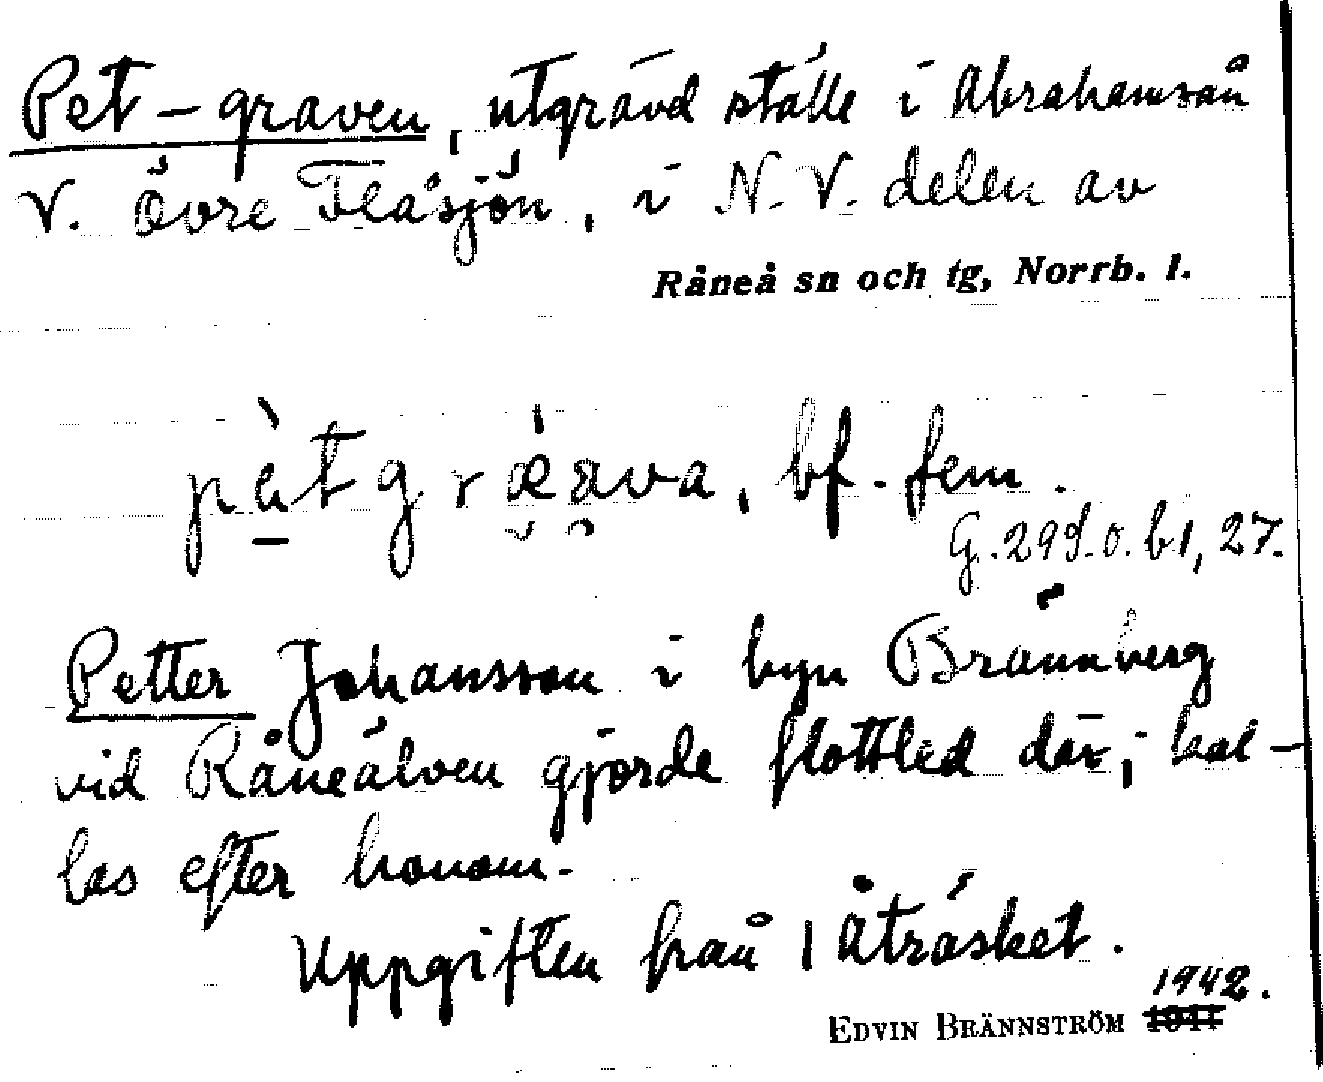 Pet-graven, utgrävd ställe i Abrahamsån
V. Övre Flåsjön, i N.V. delen av
Råneå sn och tg, Norrb. l.
bf. fem.
G. 29 b1, 27.
Petter Johansson i byn Brännberg
vid Råneälven gjorde flottled där; kal-
las efter honom.
Uppgiften från 1 Åträsket.
1942.
EDVIN BRÄNNSTRÖM 1941